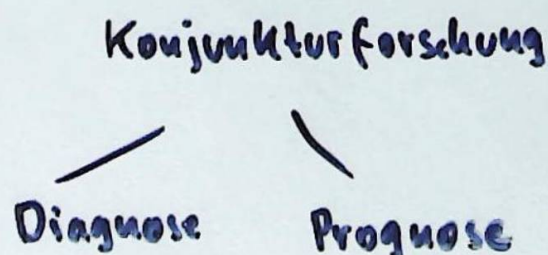 Konjunkturforschung
Diagnose Prognose